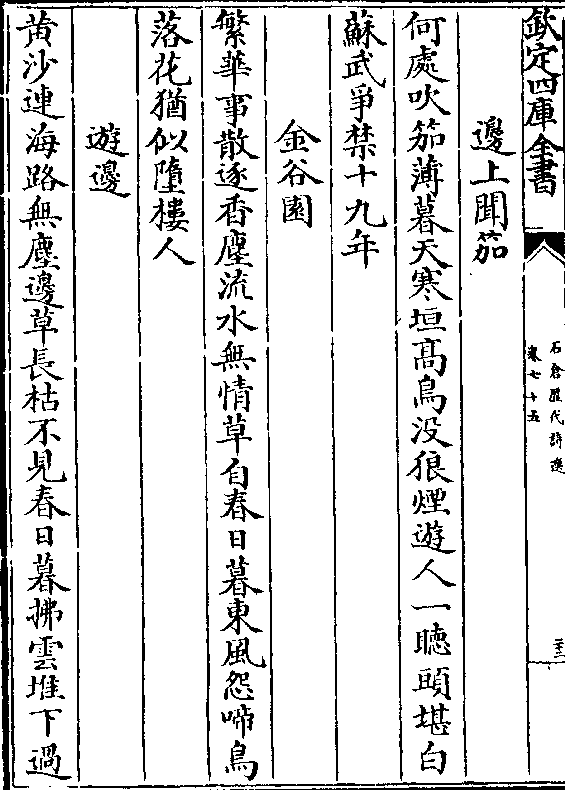 欽定四庫全書
石倉歷代詩選
卷七十五
邊上聞笳
何處吹笳薄暮天寒垣髙鳥没狼煙遊人一聽頭堪白
蘇武爭禁十九年
金谷園
繁華事散逐香塵流水無情草自春日暮東風怨啼鳥
落花猶似墮樓人
遊邊
黄沙連海路無塵邊草長枯不見春日暮拂雲堆下過